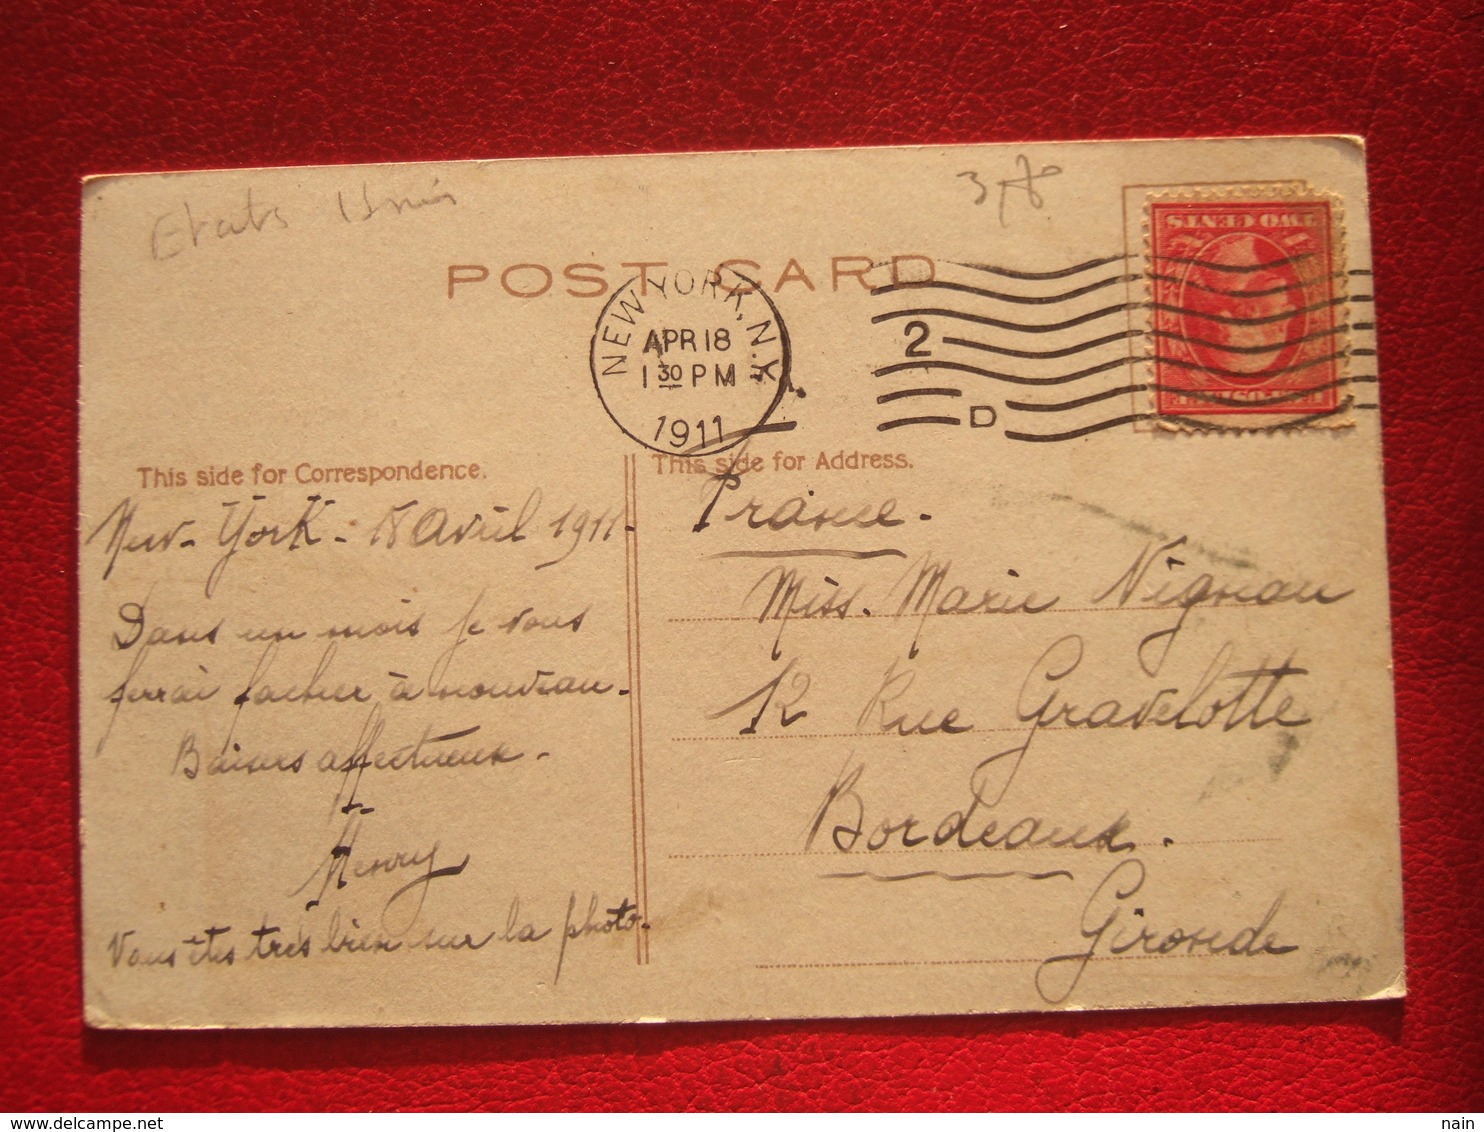 Etats Unis
POST CARD
NEW YORK, N.Y.
APR 18
1 30 PM
1911
2
D
TWO CENTS
This side for Correspondence.
New-York - 18 avril 1911.
Dans un mois je vous
ferrai facher à nouveau.
Baisers affectueux -
Henry
Vous êtes très bien sur la photo.
This side for Address.
France.
Miss. Marie Vignau
12 Rue Gravelotte
Bordeaux.
Gironde
nain